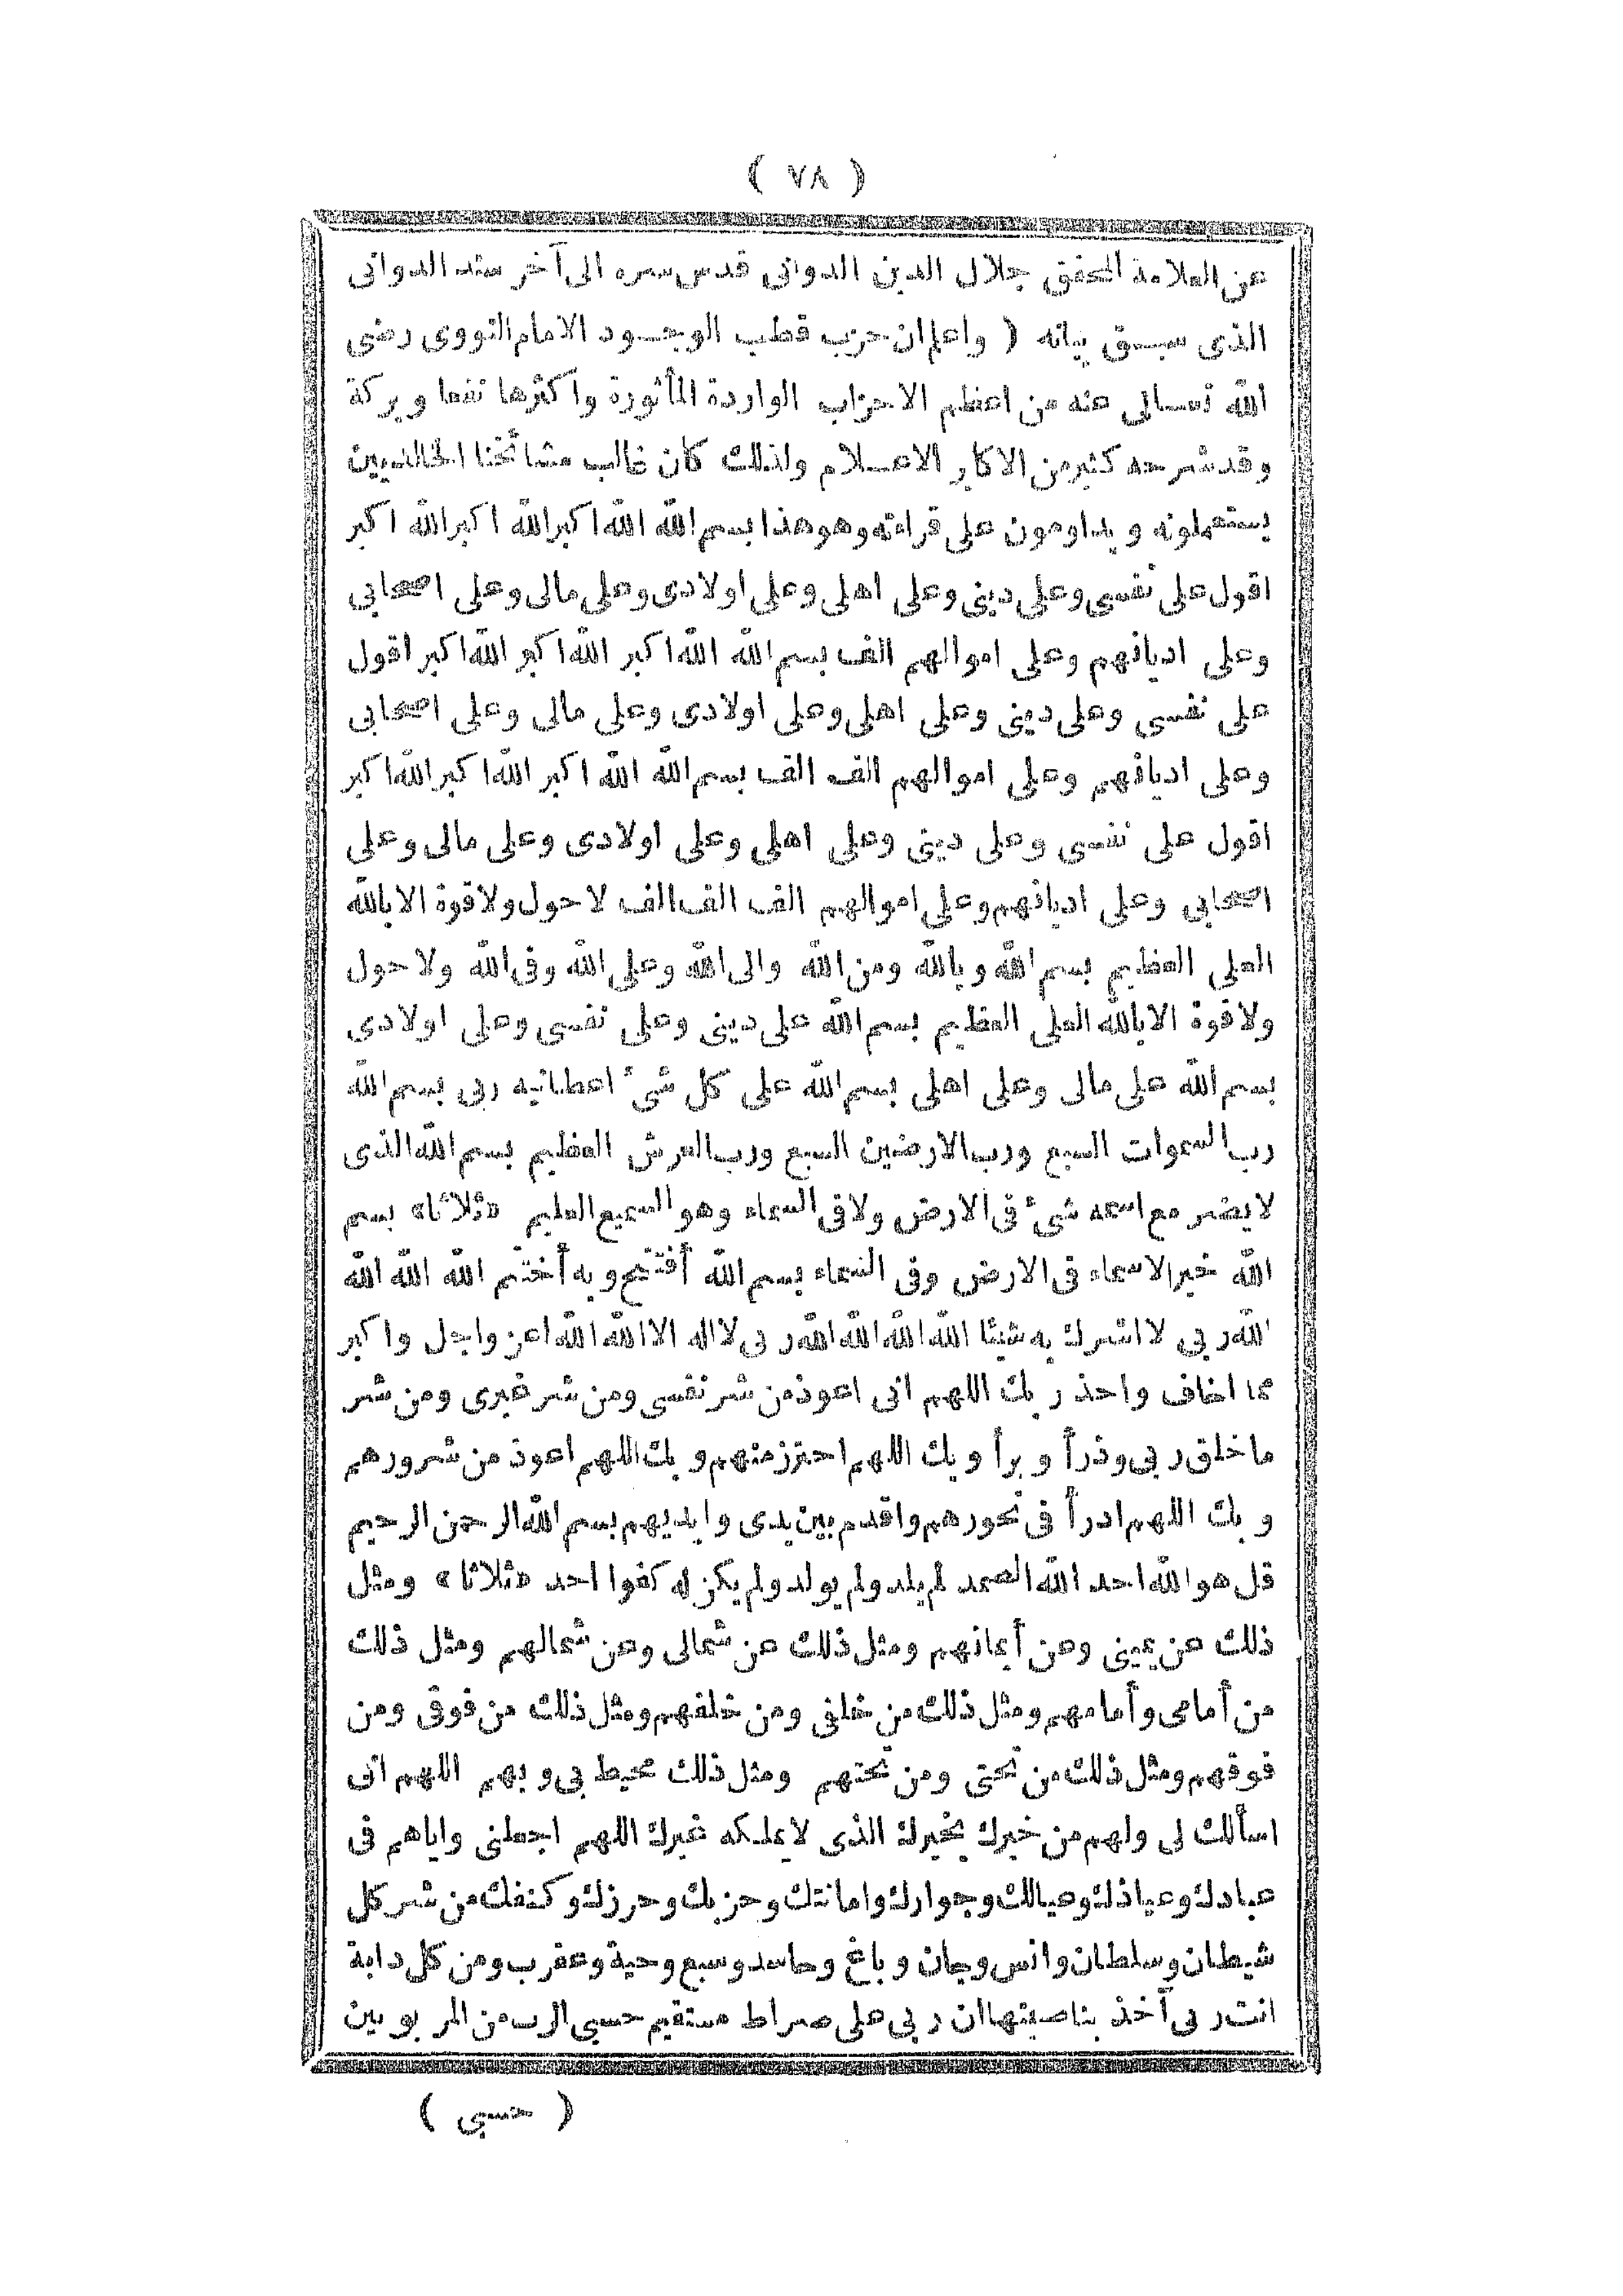 ( ٧٨ )
عن العلامة المحقق جلال الدين الدوانى قدس سره الى آخر سند الدوانى
الذى سبق بيانه ( واعلم ان حزب قطب الوجود الامام النووى رضى
الله تعالى عنه من اعظم الاحزاب الواردة المأثورة واكثرها نفعا وبركة
وقد شرحه كثير من الاكابر الاعلام ولذلك كان غالب مشائخنا الخالديين
يستعملونه ويداومون على قراءته وهو هذا بسم الله الله اكبر الله اكبر الله اكبر
اقول على نفسى وعلى دينى وعلى اهلى وعلى اولادى وعلى مالى وعلى اصحابى
وعلى اديانهم وعلى اموالهم الف بسم الله الله اكبر الله اكبر الله اكبر اقول
على نفسى وعلى دينى وعلى اهلى وعلى اولادى وعلى مالى وعلى اصحابى
وعلى اديانهم وعلى اموالهم الف الف بسم الله الله اكبر الله اكبر الله اكبر
اقول على نفسى وعلى دينى وعلى اهلى وعلى اولادى وعلى مالى وعلى
اصحابى وعلى اديانهم وعلى اموالهم الف الف الف لا حول ولا قوة الا بالله
العلى العظيم بسم الله وبالله ومن الله والى الله وعلى الله وفى الله ولا حول
ولا قوة الا بالله العلى العظيم بسم الله على دينى وعلى نفسى وعلى اولادى
بسم الله على مالى وعلى اهلى بسم الله على كل شئ اعطانيه ربى بسم الله
رب السموات السبع ورب الارضين السبع ورب العرش العظيم بسم الله الذى
لا يضر مع اسمه شئ فى الارض ولا فى السماء وهو السميع العليم «ثلاثا» بسم
الله خير الاسماء فى الارض وفى السماء بسم الله أفتتح وبه أختتم الله الله الله
الله ربى لا اشرك به شيئا الله الله الله الله ربى لا اله الا الله الله اعز واجل واكبر
مما اخاف واحذر بك اللهم انى اعوذ من شر نفسى ومن شر غيرى ومن شر
ما خلق ربى وذرأ وبرأ وبك اللهم احترز منهم وبك اللهم اعوذ من شرورهم
وبك اللهم ادرأ فى نحورهم واقدم بين يدى وايديهم بسم الله الرحمن الرحيم
قل هو الله احد الله الصمد لم يلد ولم يولد ولم يكن له كفوا احد «ثلاثا» ومثل
ذلك عن يمينى وعن أيمانهم ومثل ذلك عن شمالى وعن شمالهم ومثل ذلك
من أمامى وأمامهم ومثل ذلك من خلفى ومن خلفهم ومثل ذلك من فوقى ومن
فوقهم ومثل ذلك من تحتى ومن تحتهم ومثل ذلك محيط بى وبهم اللهم انى
اسألك لى ولهم من خيرك بخيرك الذى لا يملكه غيرك اللهم اجعلنى واياهم فى
عبادك وعياذك وعيالك وجوارك وامانتك وحزبك وحرزك وكنفك من شر كل
شيطان وسلطان وانس وجان وباغ وحاسد وسبع وحية وعقرب ومن كل دابة
انت ربى آخذ بناصيتها ان ربى على صراط مستقيم حسبى الرب من المربوبين
( حسبى )